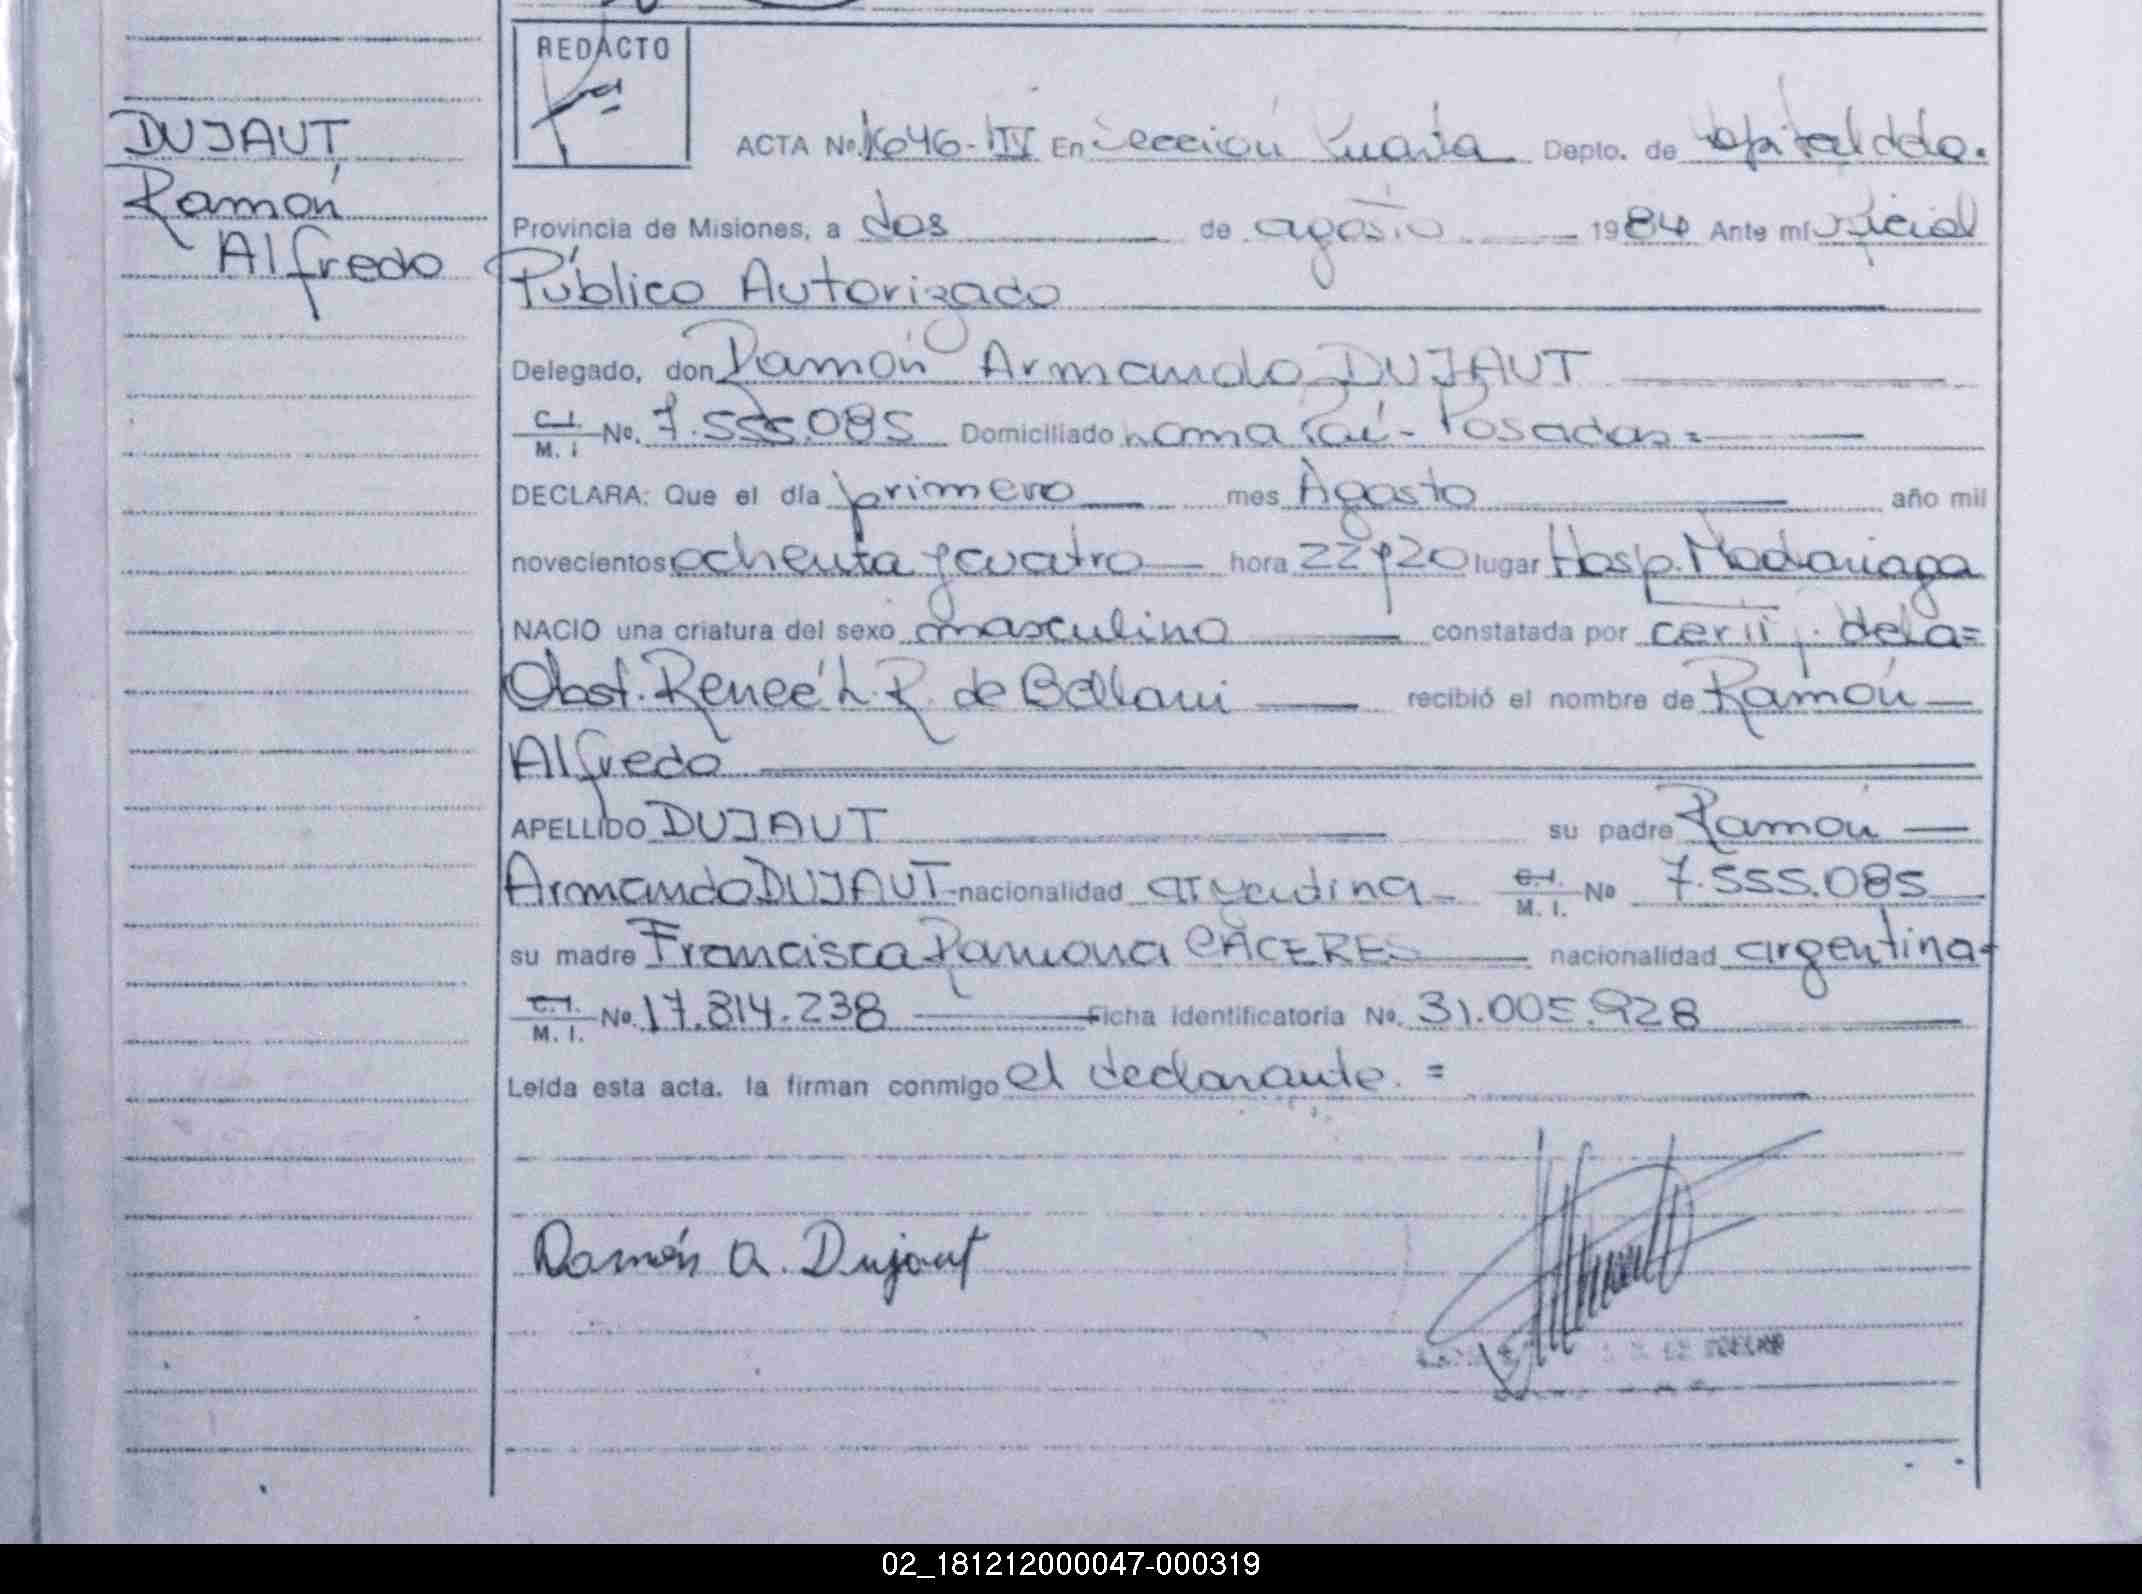 REDACTO
DUJAUT
Ramón
Alfredo
ACTA No. 1646-IV En Sección Cuarta Depto. de Capital ddo.
Provincia de Misiones, a dos de agosto 1984 Ante mí Oficial
Público Autorizado
Delegado, don Ramón Armando DUJAUT
C.I. M. I No. 7.555.085 Domiciliado Loma Poí - Posadas =
DECLARA: Que el día primero mes Agosto año mil
novecientos ochenta y cuatro hora 22 y 20 lugar Hosp. Madariaga
NACIO una criatura del sexo masculino constatada por cert. de la =
Obst. Reneé L. R. de recibió el nombre de Ramón
Alfredo
APELLIDO DUJAUT su padre Ramón
Armando DUJAUT - nacionalidad argentina - C.I. M. I. No 7.555.085
su madre Francisca Ramona CÁCERES nacionalidad argentina -
C.I. M. I. No. 17.814.238 Ficha identificatoria No. 31.005.928
Leída esta acta. la firman conmigo el declarante. =
Ramón A. Dujaut
02_181212000047-000319